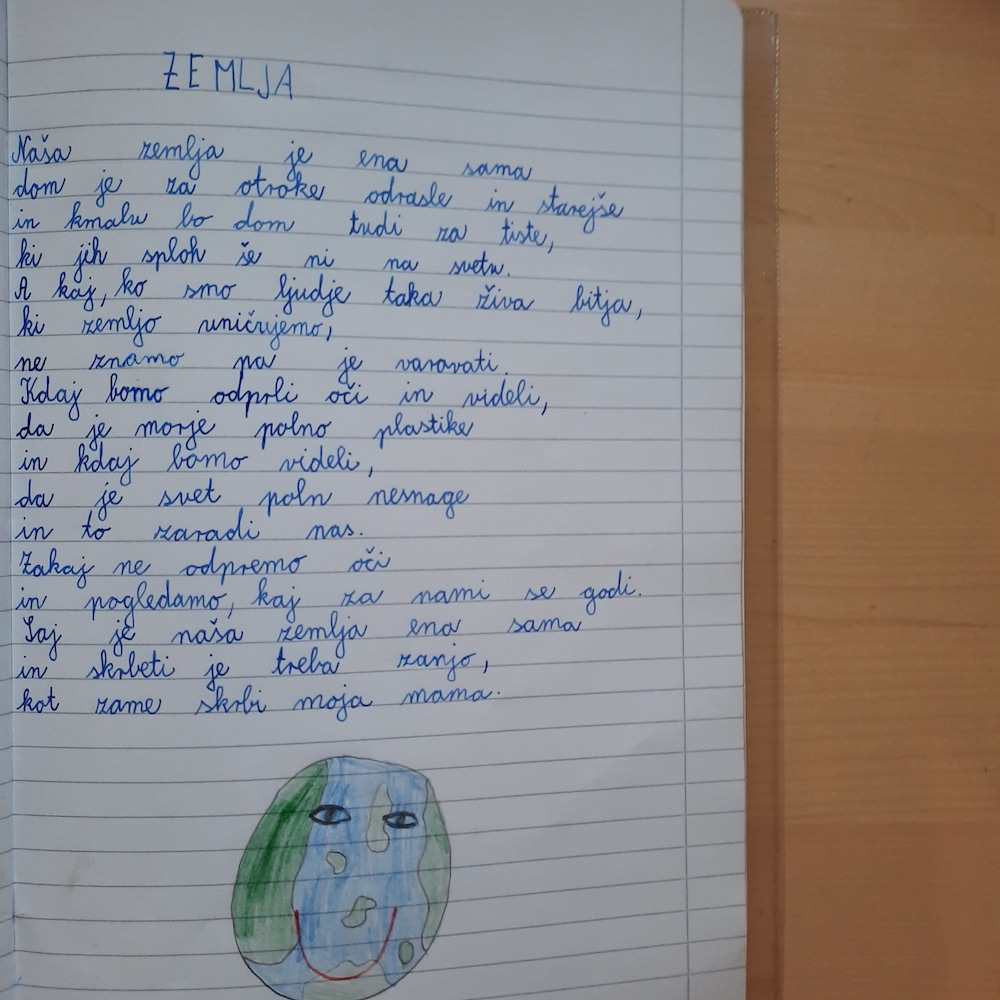 ZEMLJA
Naša zemlja je ena sama
dom je za otroke odrasle in starejše
in kmalu bo dom tudi za tiste,
ki jih sploh še ni na svetu.
A kaj, ko smo ljudje taka živa bitja,
ki zemljo uničujemo,
ne znamo pa je varavati.
Kdaj bomo odprli oči in videli,
da je morje polno plastike
in kdaj bomo videli,
da je svet poln nesnage
in to zaradi nas.
Zakaj ne odpremo oči
in pogledamo, kaj za nami se godi.
Saj je naša zemlja ena sama
in skrbeti je treba zanjo,
kot zame skrbi moja mama.